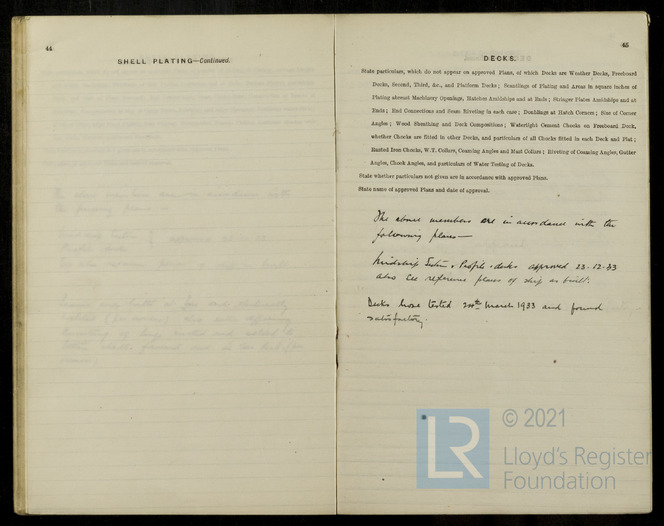 44
SHELL PLATING—Continued.
45
DECKS.
State particulars, which do not appear on approved Plans, of which Decks are Weather Decks, Freeboard
Decks, Second, Third, &c., and Platform Decks; Scantlings of Plating and Areas in square inches of
Plating abreast Machinery Openings, Hatches Amidships and at Ends; Stringer Plates Amidships and at
Ends; End Connections and Seam Riveting in each case; Doublings at Hatch Corners; Size of Corner
Angles; Wood Sheathing and Deck Compositions; Watertight Cement Chocks on Freeboard Deck,
whether Chocks are fitted in other Decks, and particulars of all Chocks fitted in each Deck and Flat;
Rusted Iron Chocks, W.T. Collars, Coaming Angles and Mast Collars; Riveting of Coaming Angles, Gutter
Angles, Chock Angles, and particulars of Water Testing of Decks.
State whether particulars not given are in accordance with approved Plans.
State name of approved Plans and date of approval.
The above members are in accordance with the
following plans—
Midship Section, Profile & decks approved 23-12-33
also see reference plans of ship as built.
Decks hose tested March 1933 and found
satisfactory.
LR
© 2021
Lloyd's Register
Foundation